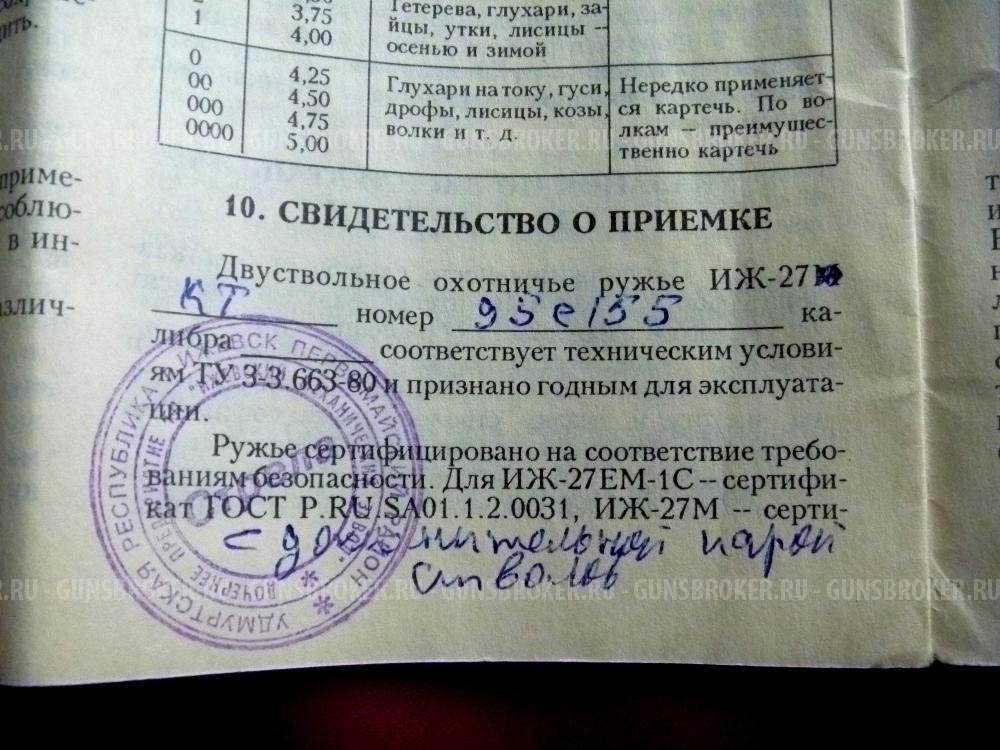 дить.
1
3,75
4,00
Тетерева, глухари, за-
йцы, утки, лисицы --
осенью и зимой
0
00
000
0000
4,25
4,50
4,75
5,00
Глухари на току, гуси,
дрофы, лисицы, козы,
волки и т. д.
Нередко применяет-
ся картечь. По во-
лкам -- преимущес-
твенно картечь
RU - GUNSBROKER.RU - GUNSBROKER.RU - GUNSBROKER.RU - GUNSBROKER.RU
приме-
соблю-
в ин-
злич-
10. СВИДЕТЕЛЬСТВО О ПРИЕМКЕ
Двуствольное охотничье ружье ИЖ-27М
КТ номер 95е155 ка-
либра соответствует техническим услови-
ям ТУ 3-3.663-80 и признано годным для эксплуата-
ции.
Ружье сертифицировано на соответствие требо-
ваниям безопасности. Для ИЖ-27ЕМ-1С -- сертифи-
кат ГОСТ Р.RU.SA01.1.2.0031, ИЖ-27М -- серти-
с дополнительной парой
стволов
УДМУРТСКАЯ РЕСПУБЛИКА Г. ИЖЕВСК ПЕРВОМАЙСКИЙ РАЙОН
ДОЧЕРНЕЕ ПРЕДПРИЯТИЕ "ИЖЕВСКИЙ МЕХАНИЧЕСКИЙ ЗАВОД"
RU - GUNSBROKER.RU - GUNSBROKER.RU - GUNSBROKER.RU - GUNSBROKER.RU